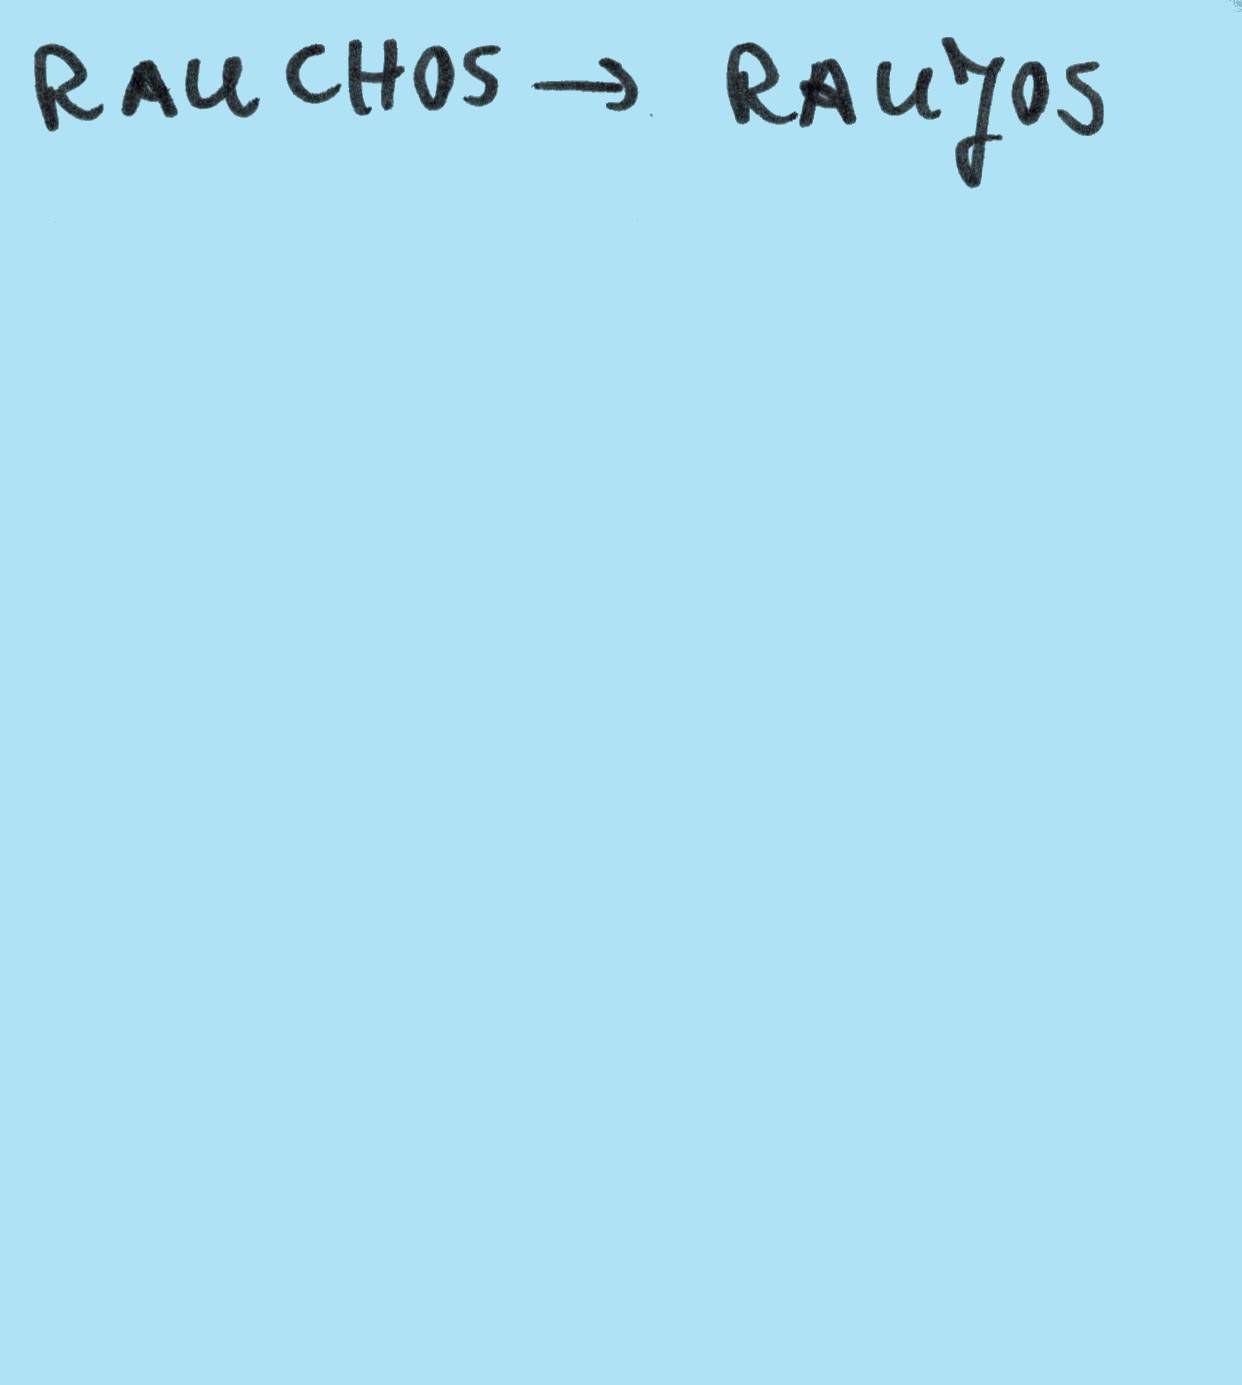 RAUCHOS → RAUYOS